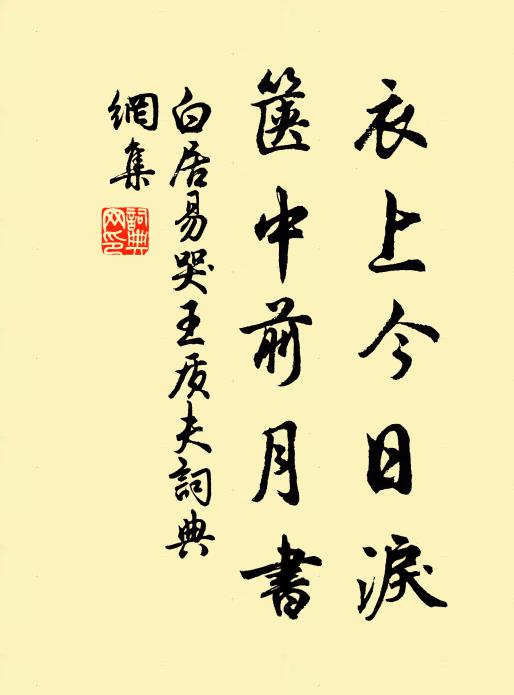 衣上今日淚
篋中前月書
白居易哭王质夫詞典
網集
詞典
网印